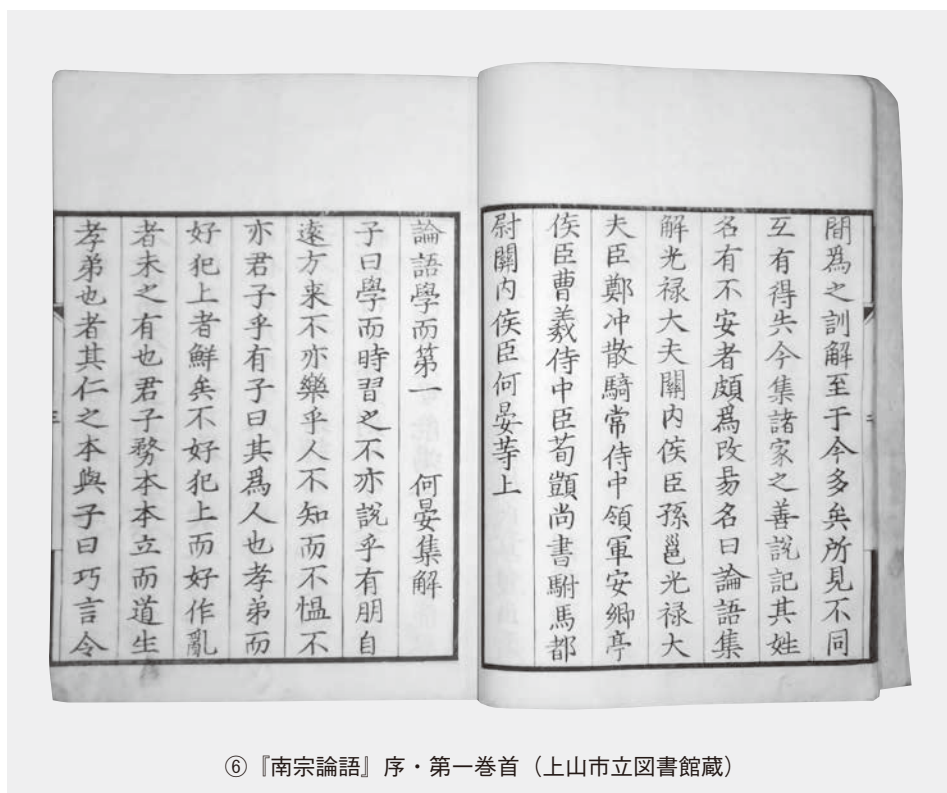 間爲之訓解至于今多矣所見不同
互有得失今集諸家之善說記其姓
名有不安者頗爲改易名曰論語集
解光禄大夫關內侯臣孫邕光禄大
夫臣鄭冲散騎常侍中領軍安鄉亭
侯臣曹羲侍中臣荀顗尚書駙馬都
尉關內侯臣何晏等上
論語學而第一　何晏集解
子曰學而時習之不亦說乎有朋自
遠方来不亦樂乎人不知而不慍不
亦君子乎有子曰其爲人也孝弟而
好犯上者鮮矣不好犯上而好作亂
者未之有也君子務本本立而道生
孝弟也者其仁之本與子曰巧言令
⑥『南宗論語』序・第一巻首（上山市立図書館蔵）